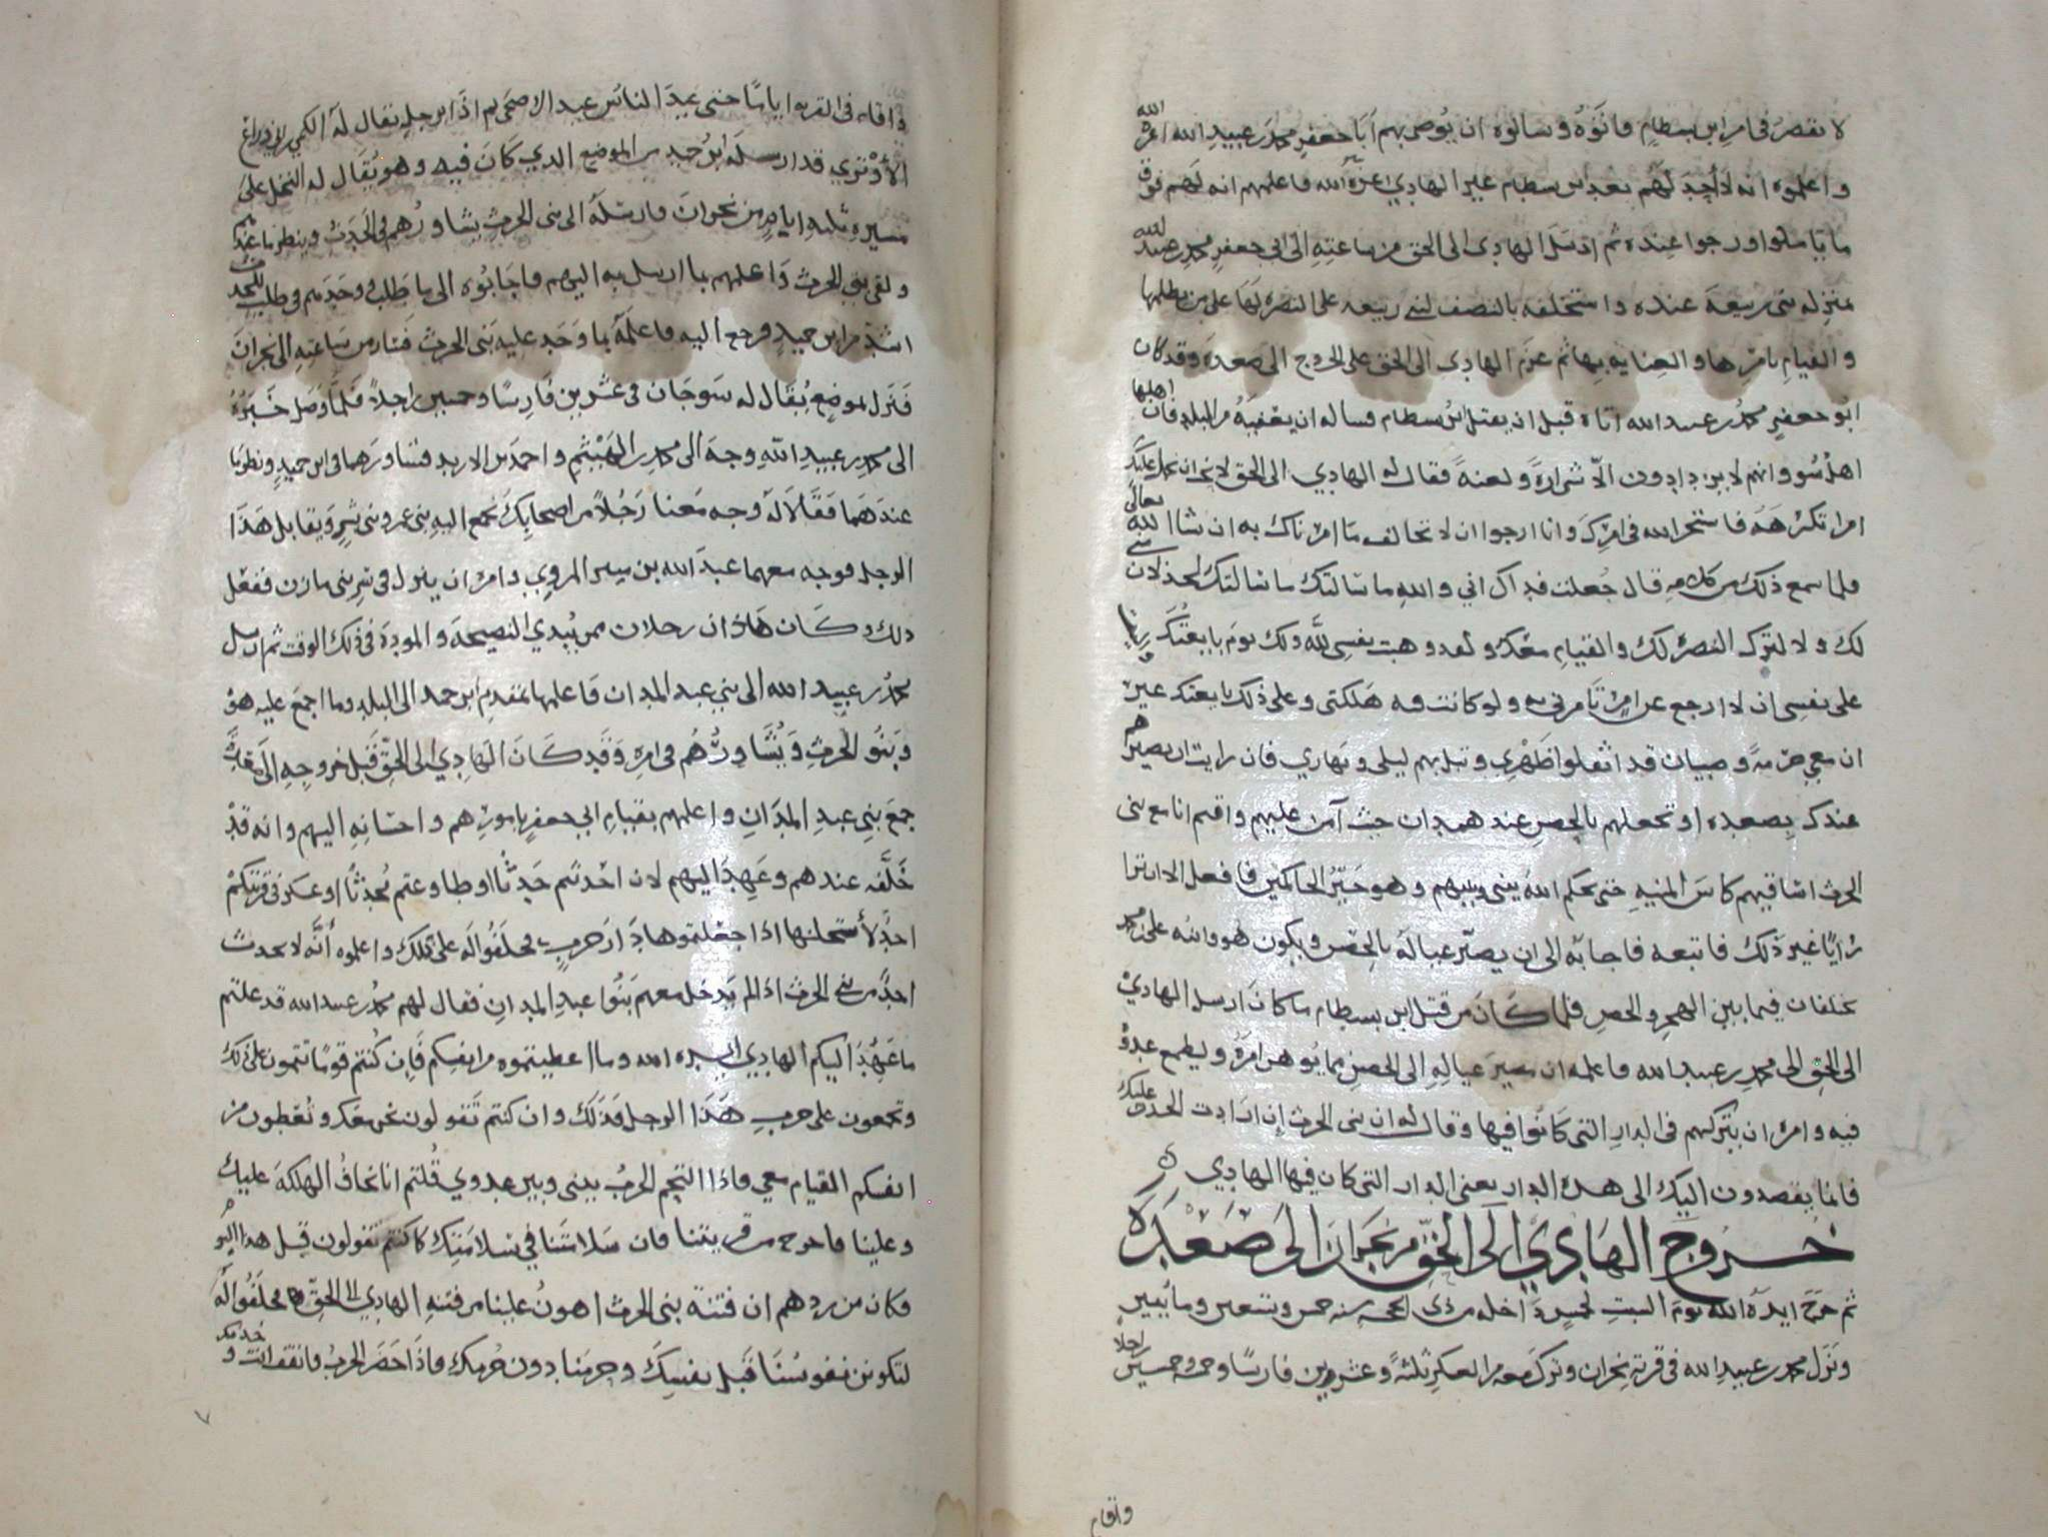 لا نقصر في امر ابن بسطام فاتوه وسالوه ان يوصي بهم ابا جعفر محمد بن عبيد الله اعزه الله
واعلموه انه لا احد لهم بعد ابن بسطام غير الهادي اعزه الله فاعلمهم انه لهم فوق
ما ياملوا ورجوا عنده ثم ارسل الهادي الى الحق من ساعته الى ابي جعفر محمد بن عبيد الله
منزله بني ربيعة عنده واستخلفه بالنصف لبني ربيعه على النصره لها على من يظلمها
والقيام بامرها والعنايه بها ثم عزم الهادي الى الحق على الخروج الى صعدة وقد كان
ابو جعفر محمد بن عبيد الله اتاه قبل ان يقتل ابن بسطام فساله ان يعفيه من البلد فان اهلها
اهل سو وانهم لا يزدادون الا شرارة ولعنة فقال له الهادي الى الحق لا نحب ان نحمل عليك
امرا تكرهه فاستخر الله في امرك وانا ارجوا ان لا تخالف ما امرناك به ان شا الله تعالى
فلما سمع ذلك من كلامه قال جعلت فداك اني والله ما سالتك ما سالتك لخذلان مني
لك ولا لترك النصره لك والقيام معك ولقد وهبت نفسي لله ولك يوم بايعتك
على نفسي ان لا ارجع عن امر تامرني به ولو كانت فيه هلكتي وعلى ذلك بايعتك غير
ان معي حرمة وصبيان قد اثقلوا ظهري وتبلبهم ليلي ونهاري فان رايت ان تصيرهم
عندك بصعده او تجعلهم بالحصن عند همدان حيث آمن عليهم واقيم انا مع بني
الحرث اساقيهم كاس المنيه حتى يحكم الله بيني وبينهم وهو خير الحاكمين فافعل الا ان ترا
رايا غير ذلك فاتبعه فاجابه الى ان يصير عياله بالحصن ويكون هو وابنه على بن محمد
يختلفان فيما بين الهجر والحصن فلما كان من قتل ابن بسطام ما كان ارسل الهادي
الى الحق الى محمد بن عبيد الله فاعلمه ان مسير عياله الى الحصن مما يوهن امره ويطمع عدوه
فيه وامره ان يتركهم في الدار التي كانوا فيها وقال له ان بني الحرث ان ارادت الحدث عليك
فانما يقصدون اليك الى هذه الدار يعني الدار التي كان فيها الهادي
خروج الهادي الى الحق من نجران الى صعدة
ثم خرج ايده الله يوم السبت لخمس داخله من ذي الحجه سنه خمس وتسعين ومائتين
ونزل محمد بن عبيد الله في قرية نجران وترك معه من العسكر ثلثة وعشرين فارسا وخمسة وخمسين راجلا
واقام
واقام في القريه اياما حتى عيد الناس عيد الاضحى ثم اذا برجل يقال له الكميل
قد ارسله ابن حميد من الموضع الذي كان فيه وهو يقال له النخل على
مسيره ثلثه ايام من نجران فارسله الى بني الحرث يشاورهم في الحدث وينظر ما عندهم
ولقي بني الحرث واعلمهم بما ارسل به اليهم فاجابوه الى ما طلب ووجدهم في طلب الحدث
اشد من ابن حميد فرجع اليه فاعلمه بما وجد عليه بني الحرث فسار من ساعته الى نجران
فنزل بموضع يقال له سوجان في عشرين فارسا وخمسين راجلا فلما وصل خبره
الى محمد بن عبيد الله وجه الى محمد بن الهيثم واحمد بن الاربد فشاورهما في ابن حميد ونظر ما
عندهما فقالا له وجه معنا رجلا من اصحابك نجمع اليه بني عمرو وبني بشر ويقابل هذا
الرجل فوجه معهما عبد الله بن ميسر المروي وامره ان ينزل في بني مازن ففعل
ذلك وكان هاذان رجلان ممن يبدي النصيحة والمودة في ذلك الوقت ثم ارسل
محمد بن عبيد الله الى بني عبد المدان فاعلمها بمقدم ابن حميد الى البلد وما اجمع عليه هو
وبنو الحرث ويشاورهم في امره وقد كان الهادي الى الحق قبل خروجه
جمع بني عبد المدان واعلمهم بقيام ابي جعفر بامورهم واحسانه اليهم وانه قد
خلفه عندهم وعهد اليهم لان احدثتم حدثا او طاوعتم محدثا او عسكر في قريتكم
احد لأستحلنها اذا جعلتموها دار حرب فحلفوا له على ذلك واعلموه أنه لا يحدث
احد من بني الحرث اذا لم يدخل معهم بنوا عبد المدان فقال لهم محمد بن عبيد الله قد علمتم
ما عهد اليكم الهادي ايده الله وما اعطيتموه من انفسكم فان كنتم قوما تتمون على ذلك
وتجمعون على حرب هذا الرجل فذلك وان كنتم تقولون نحن معك وتعطون من
انفسكم القيام معي فاذا التحم الحرب بيني وبين عدوي قلتم انا نخاف الهلكه عليك
وعلينا فاخرج من قريتنا فان سلامتنا في سلامتك كما كنتم تقولون قبل هذا اليوم
فكان من ردهم ان فتنة بني الحرث اهون علينا من فتنه الهادي الى الحق فحلفوا له
لتكونن نفوسنا قبل نفسك وحرمنا دون حرمك فاذا حضر الحرب فانفقت انت وخدمك
٧